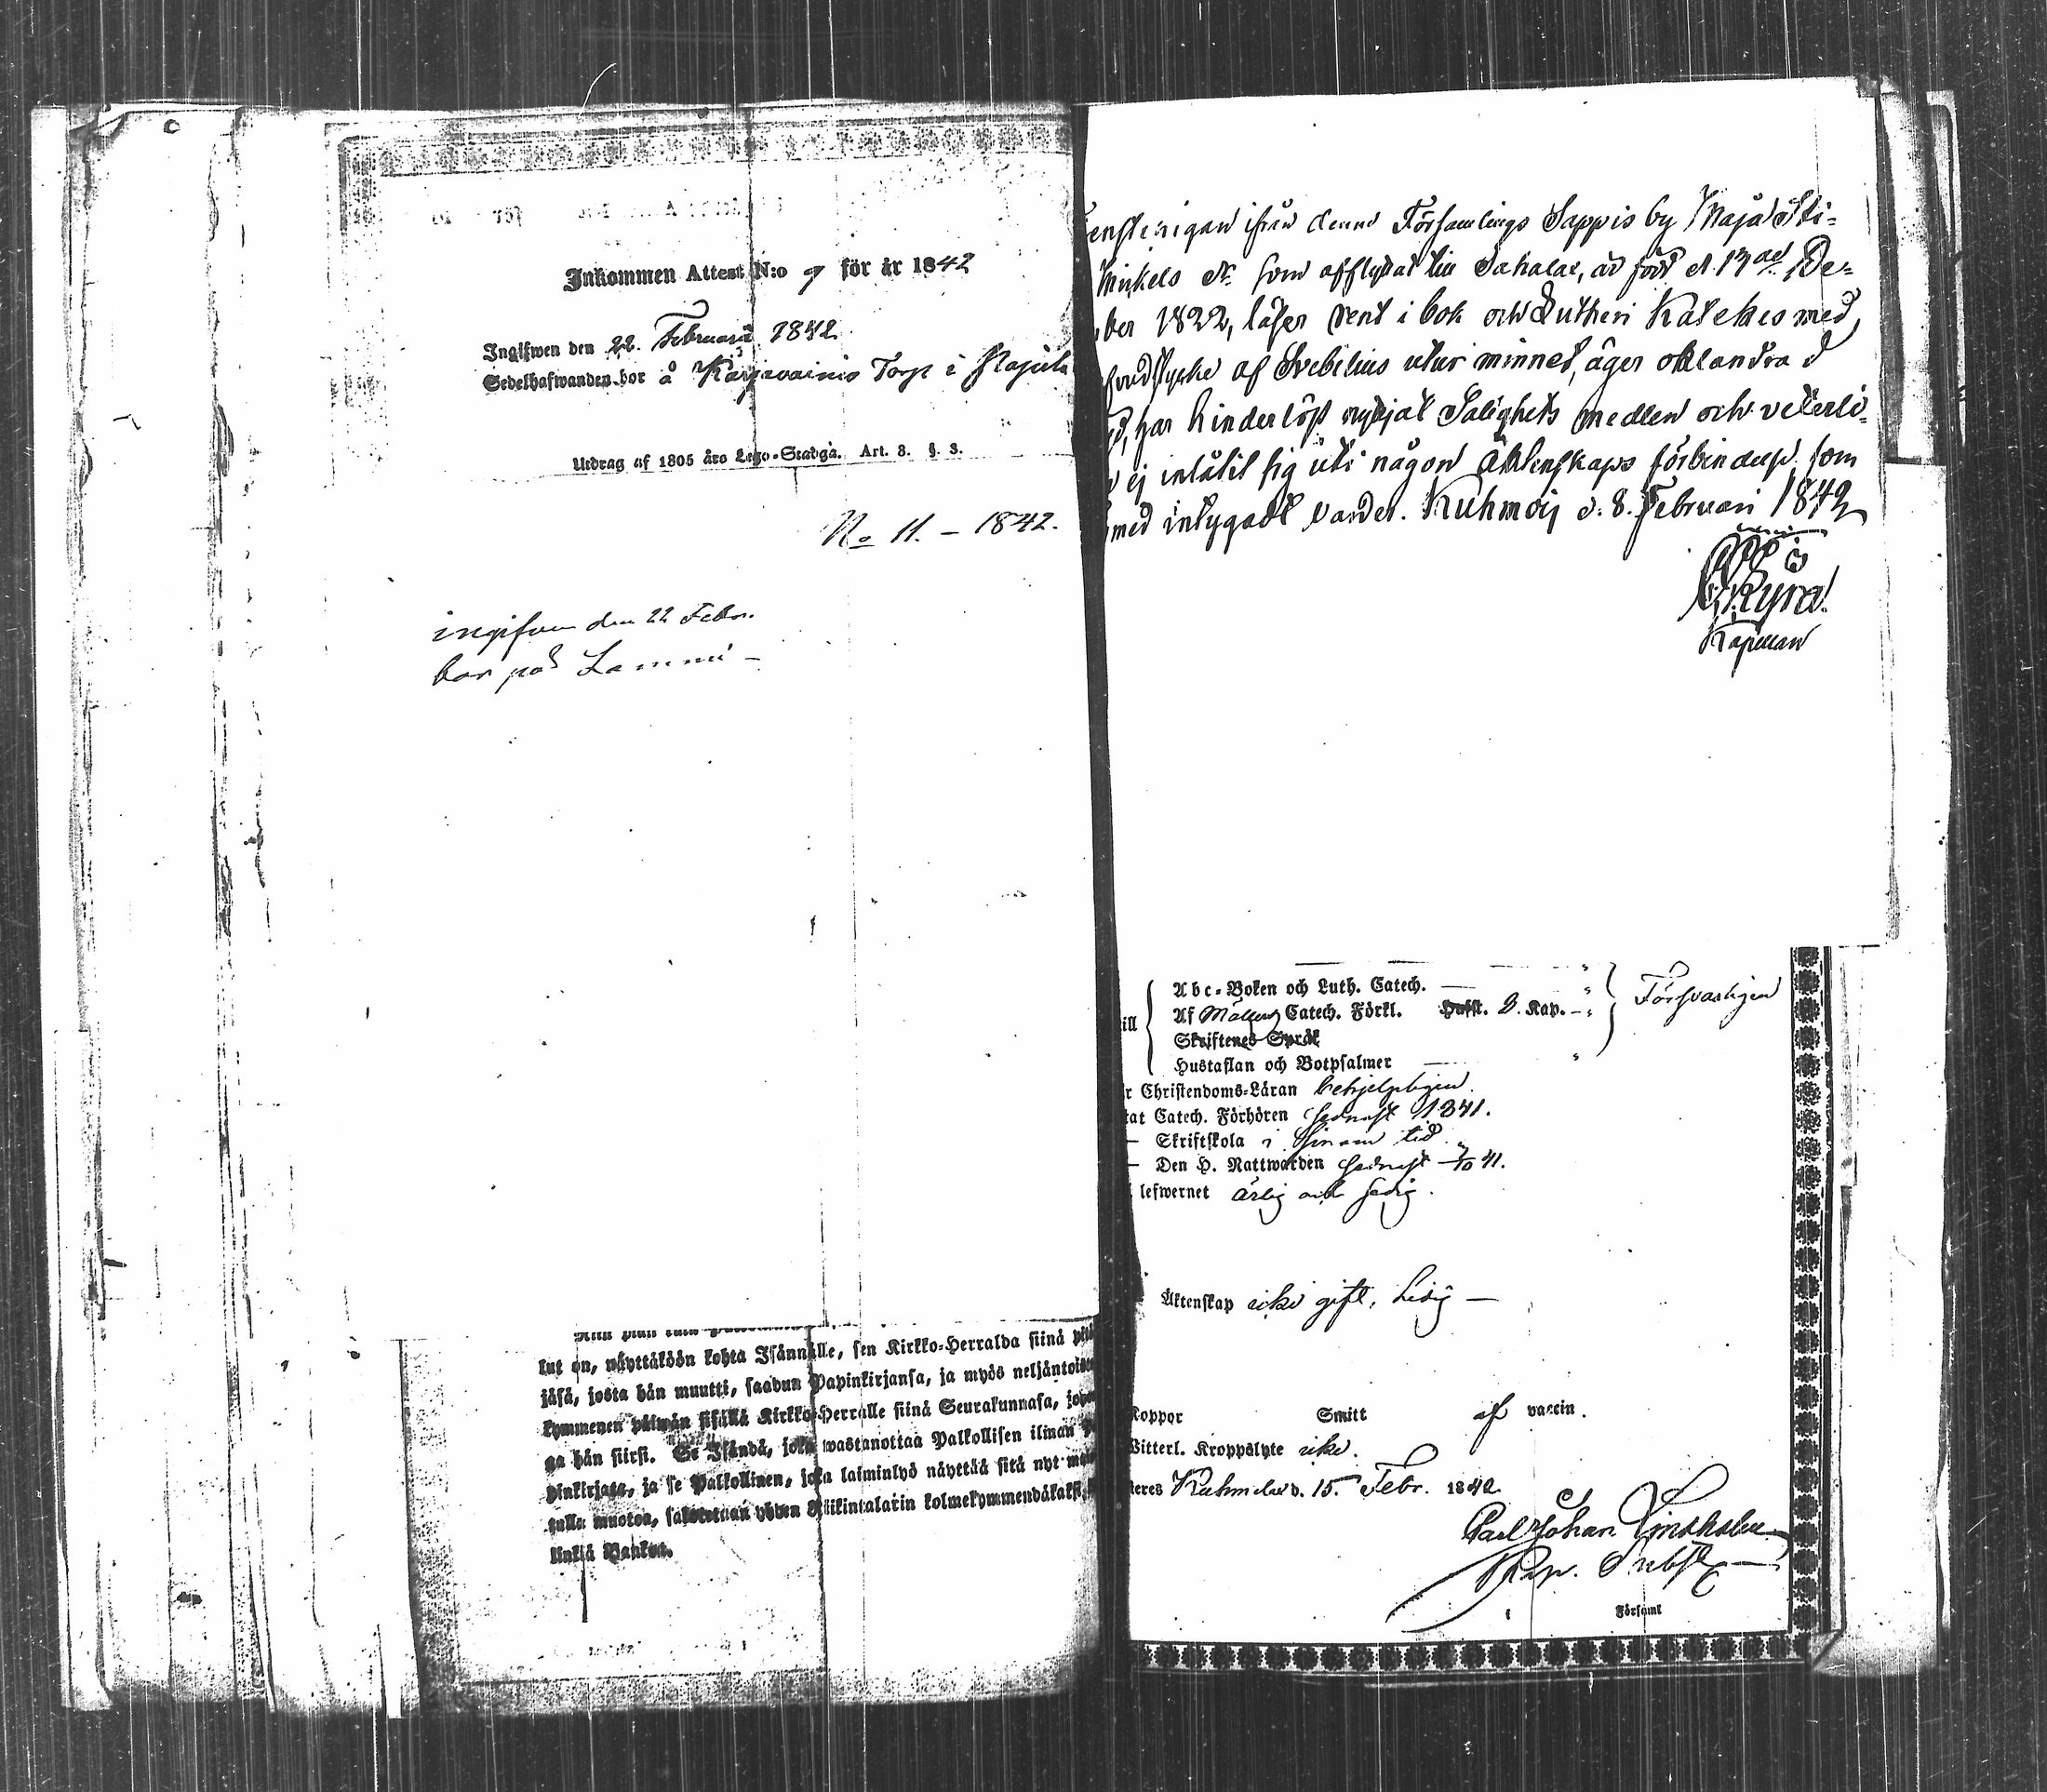 Inkommen Attest N:o 9 för år 1842
Ingifwen den 22. Februarii 1842
Sedelhafwanden bor å Karjavainio Torp i
Utdrag af 1805 års Lego-Stadga. Art. 3. §. 3.
No 11. – 1842.
ingifven den 22 Febr.
bor på Lammi –
lut on, näyttäköön kohta Isännälle, sen Kirkko-Herralda siinä
jäsä, josta hän muutti, saadun Papinkirjansa, ja myös neljäntoista
kymmenen päiwän sisällä Kirkko-Herralle siinä Seurakunnasa, jo
ga hän siirsi. Se Isändä, joka wastanottaa Palkollisen ilman
pinkirjata, ja se Palkollinen, joka laiminlyö näyttää sitä nyt
tulla muotoa, sakotetaan yhden Riikintalarin kolmekymmendäkaksi
linkiä Bankos.
ifrån denne Församlings Sappis by Maja Sti-
Mickels dr som afflyttar till Sahalax, är född d. 13de De-
ber 1822, läser rent i bok och Lutheri Kateches med
af Svebelius utur minnet, äger oklandrad
har hinderlöst nyttjat Salighets medlen och veterli-
ej inlåtit sig uti någon äktenskaps förbindelse, som
med intygadt varder. Kuhmois d. 8. Februari 1842
Kyra
Kapellan
ill
Abc-Boken och Luth. Catech. —
Af Catech. Förkl. 2. Kap. –
Skriftenes Språk
Hustaflan och Botpsalmer —
Försvarligen
r Christendoms-Läran behjelpligen.
tat Catech. Förhören sednast 1841.
— Skriftskola i sinom tid.
— Den H. Nattwarden sednast 41.
lefwernet ärlig och sedig.
Äktenskap icke gift, ledig —
Koppor Smitt af vaccin.
Witterl. Kroppslyte icke.
teres d. 15. Febr. 1842
Carl Johan Lindholm
Kap. Subst
Församl